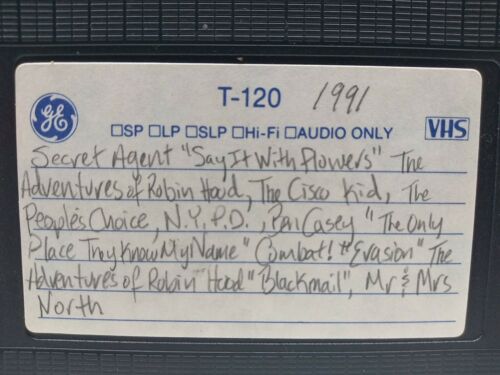 GE T-120 1991
☐SP ☐LP ☐SLP ☐Hi-Fi ☐AUDIO ONLY VHS
Secret Agent "Say It With Flowers" The
Adventures of Robin Hood, The Cisco Kid, The
People's Choice, N.Y.P.D., Ben Casey "The Only
Place They Know My Name" Combat! "Evasion" The
Adventures of Robin Hood "Blackmail", Mr & Mrs
North